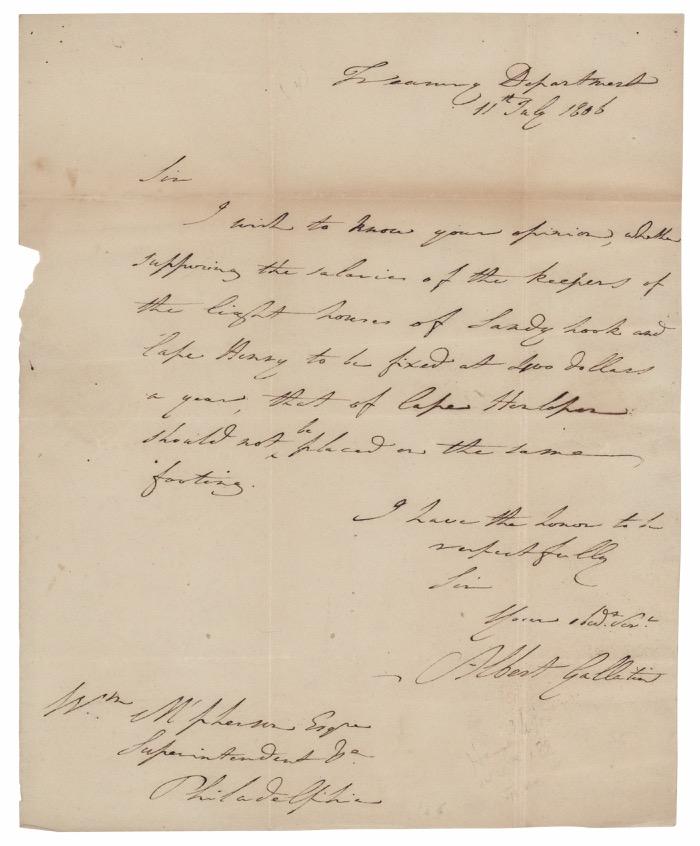 Treasury Department
11th July 1806
Sir
I wish to know your opinion, whether
supposing the salaries of the keepers of
the light houses of Sandy hook and
Cape Henry to be fixed at two dollars
a year, that of Cape Henlopen
should not be placed on the same
footing.
I have the honor to be
respectfully
Sir
Your obedt. Servt.
Albert Gallatin
Wm. McPherson Esqre
Superintendent &a
Philadelphia